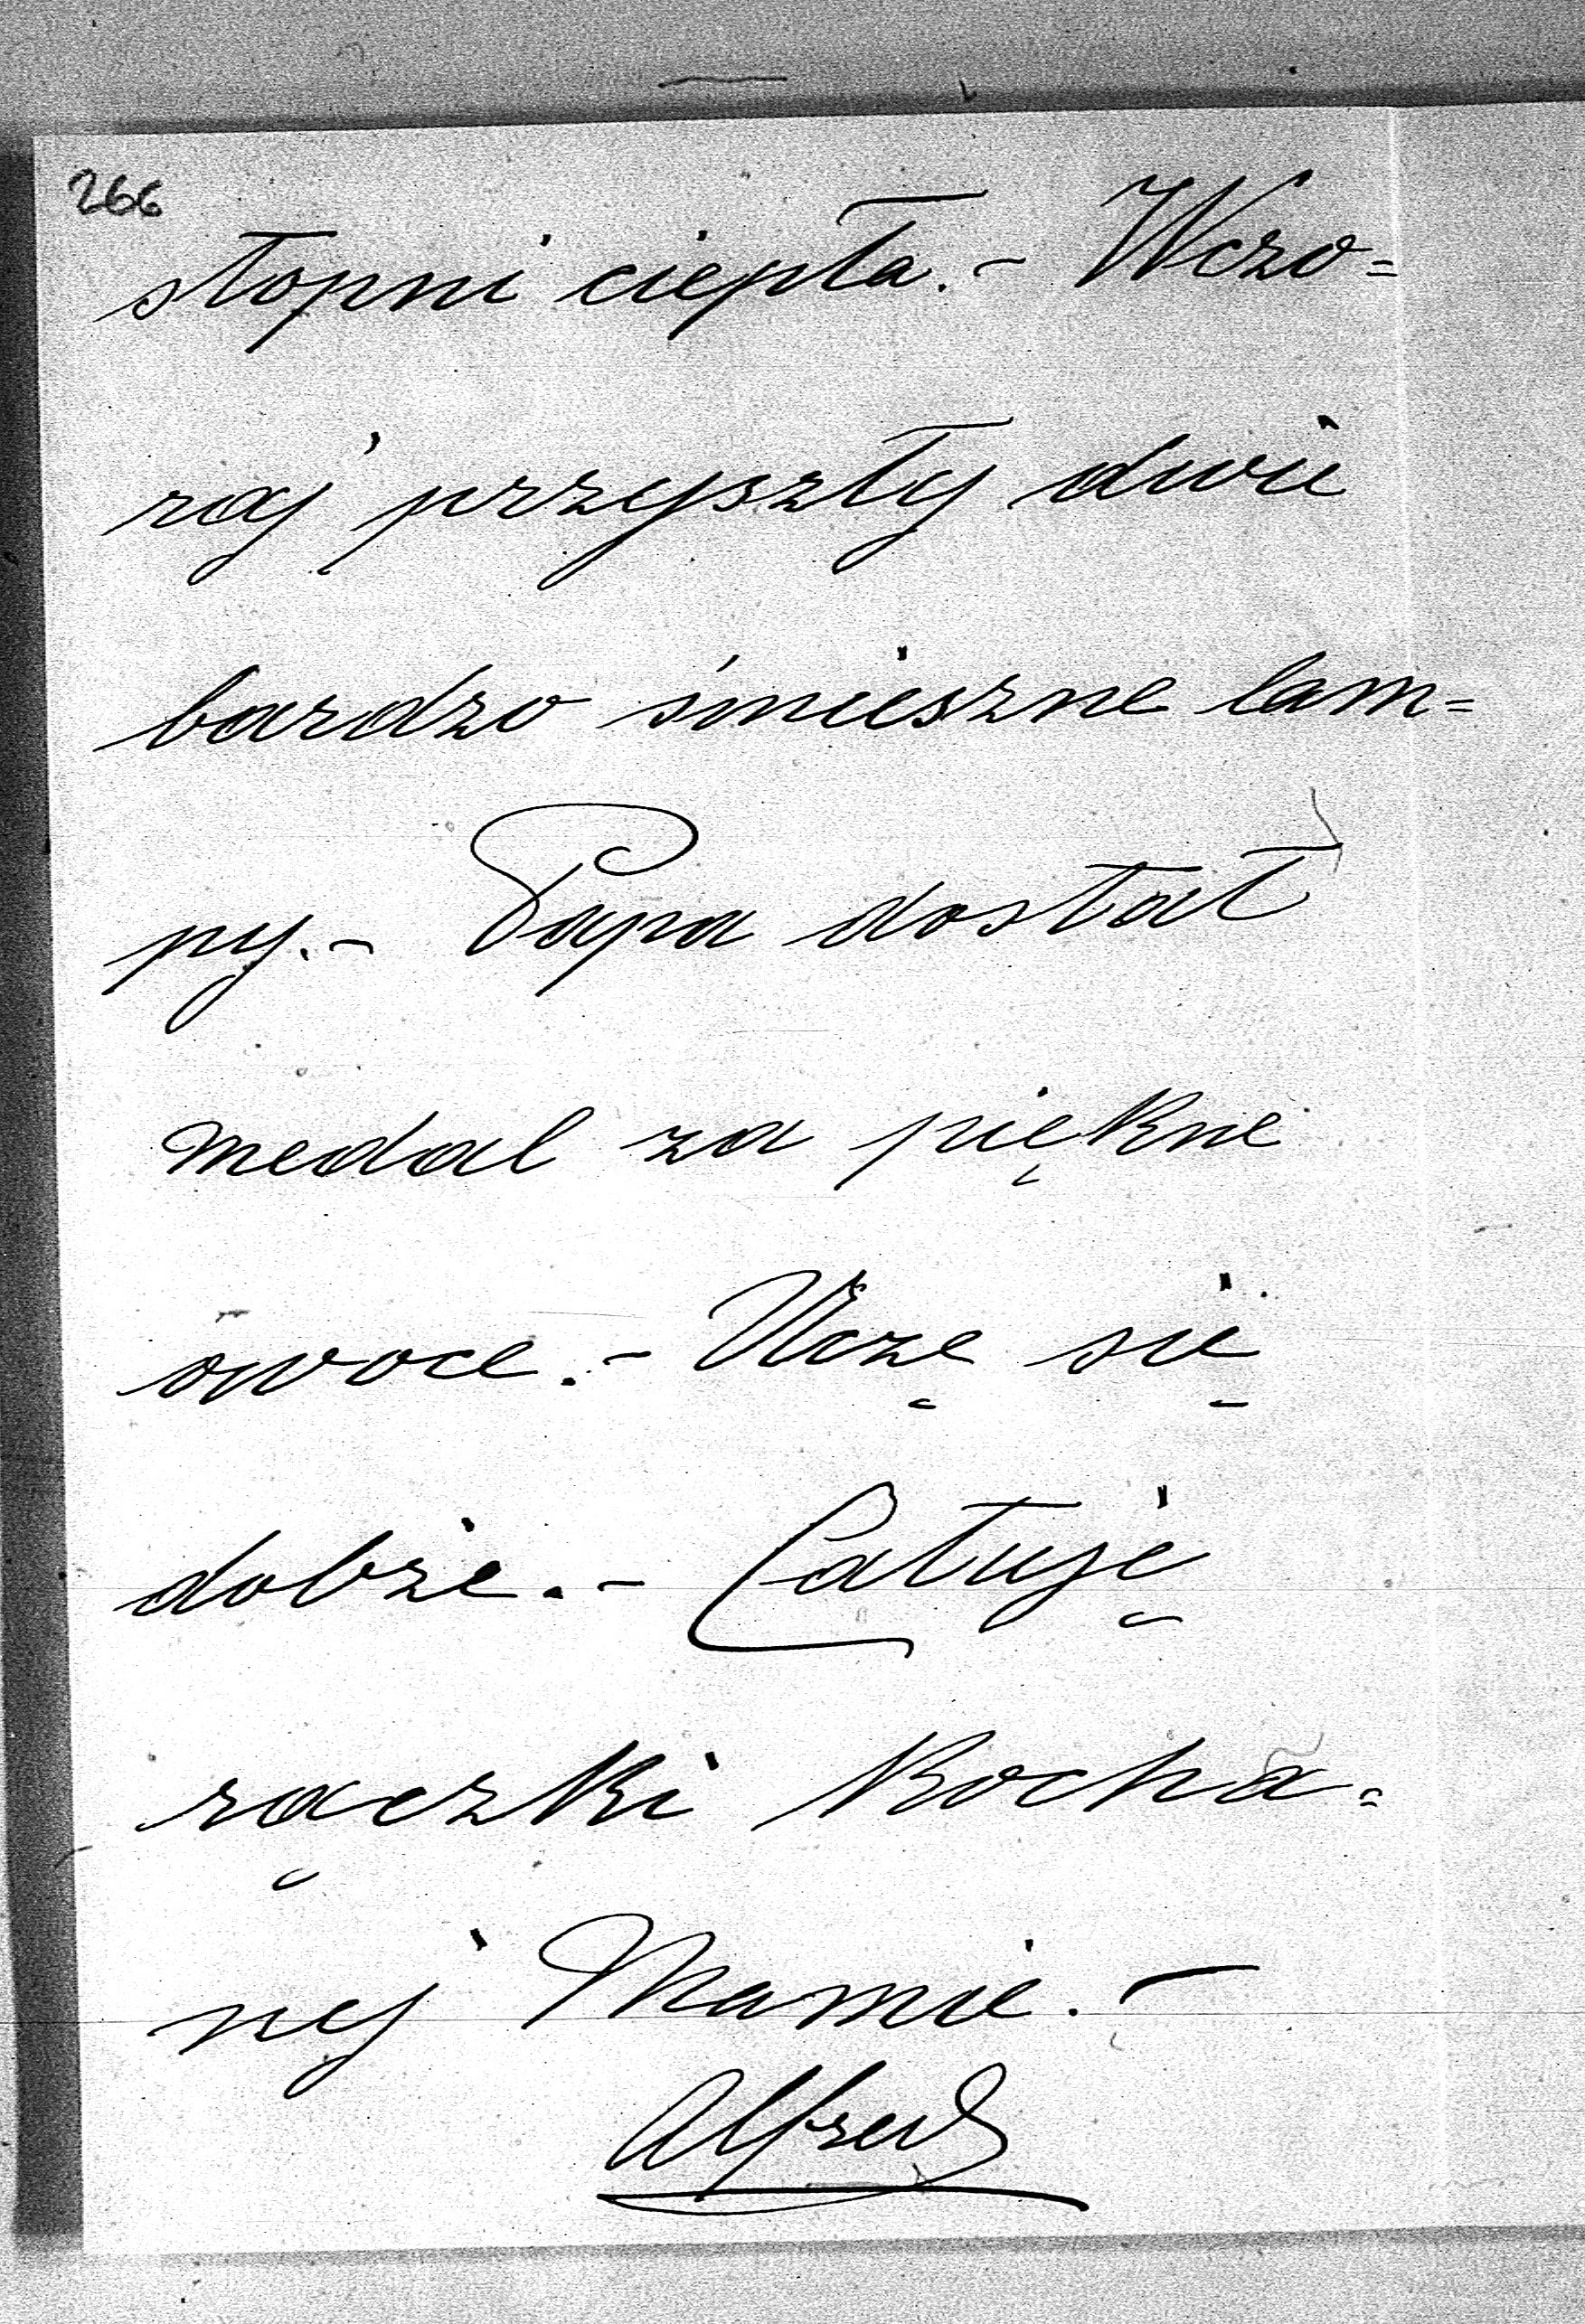 266
stopni ciepła.- Wczo=
raj przyszły dwie
bardzo śmieszne lam=
py.- Papa dostał
medal za piękne
owoce.- Uczę się
dobże.- Całuję
rączki Kocha=
nej Mamie.-
Alfred